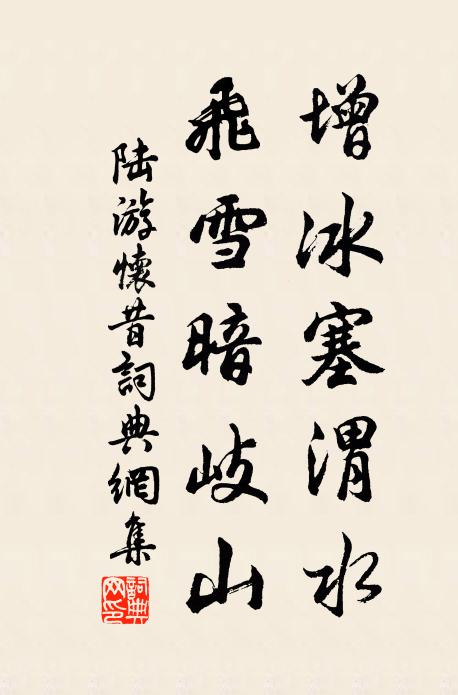 增冰塞渭水
飛雪暗岐山
陸游懷昔詞典網集
詞典網印